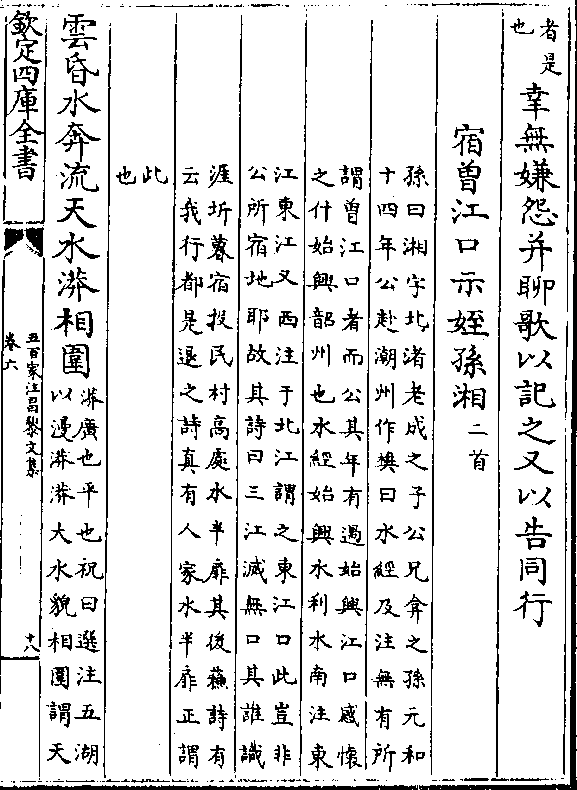 者是
也
幸無嫌怨并聊歌以記之又以告同行
宿曾江口示姪孫湘二首
孫曰湘字北渚老成之子公兄弇之孫元和
十四年公赴潮州作樊曰水經及注無有所
謂曾江口者而公其年有過始興江口感懷
之什始興韶州也水經始興水利水南注東
江東江又西注于北江謂之東江口此豈非
公所宿地耶故其詩曰三江滅無口其誰識
涯圻暮宿投民村高處水半扉其後蘇詩有
云我行都是退之詩真有人家水半扉正謂
此
也
雲昏水奔流天水漭相圍
漭廣也平也祝曰選注五湖
以漫漭漭大水貌相圍謂天
欽定四庫全書
五百家注昌黎文集
卷六
十八